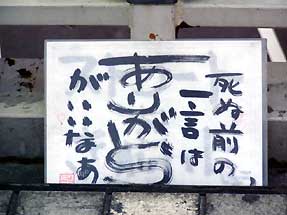 死ぬ前の
一言は
ありがとう
がいいなあ